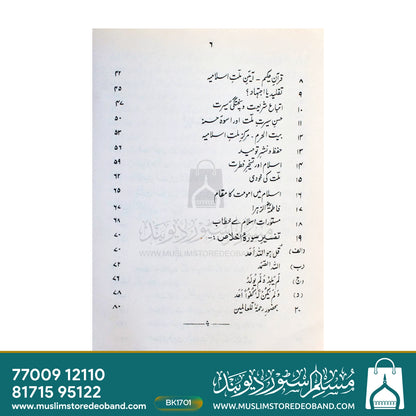 ۶
۸ قرآن حکیم - آئینِ ملتِ اسلامیہ ۳۲
۹ تقلید یا اجتہاد؟ ۳۵
۱۰ اتباعِ شریعت و پختگیِ سیرت ۴۷
۱۱ حسنِ سیرتِ ملت اور اسوۂ حسنہ ۵۰
۱۲ بیت الحرم - مرکزِ ملتِ اسلامیہ ۵۳
۱۳ حفظ و نشرِ توحید
۱۴ اسلام اور تسخیرِ فطرت ۵۹
۱۵ ملت کی خودی ۶۲
۱۶ اسلام میں امومت کا مقام ۶۵
۱۷ فاطمۃ الزہرا
۱۸ مستوراتِ اسلام سے خطاب ۶۸
۱۹ تفسیر سورۂ اخلاص :- ۷۰
(الف) قل ہو اللہ احد ۷۰
(ب) اللہ الصمد
(ج) لم یلد ولم یولد ۷۶
(د) ولم یکن لہ کفوا احد ۷۸
۲۰ بحضور رحمۃ للعالمین ۸۰
مسلم اسٹور دیوبند
WWW.MUSLIMSTOREDEOBAND.COM
77009 12110
81715 95122
www.muslimstoredeoband.com
BK1701
مسلم اسٹور دیوبند
www.muslimstoredeoband.com